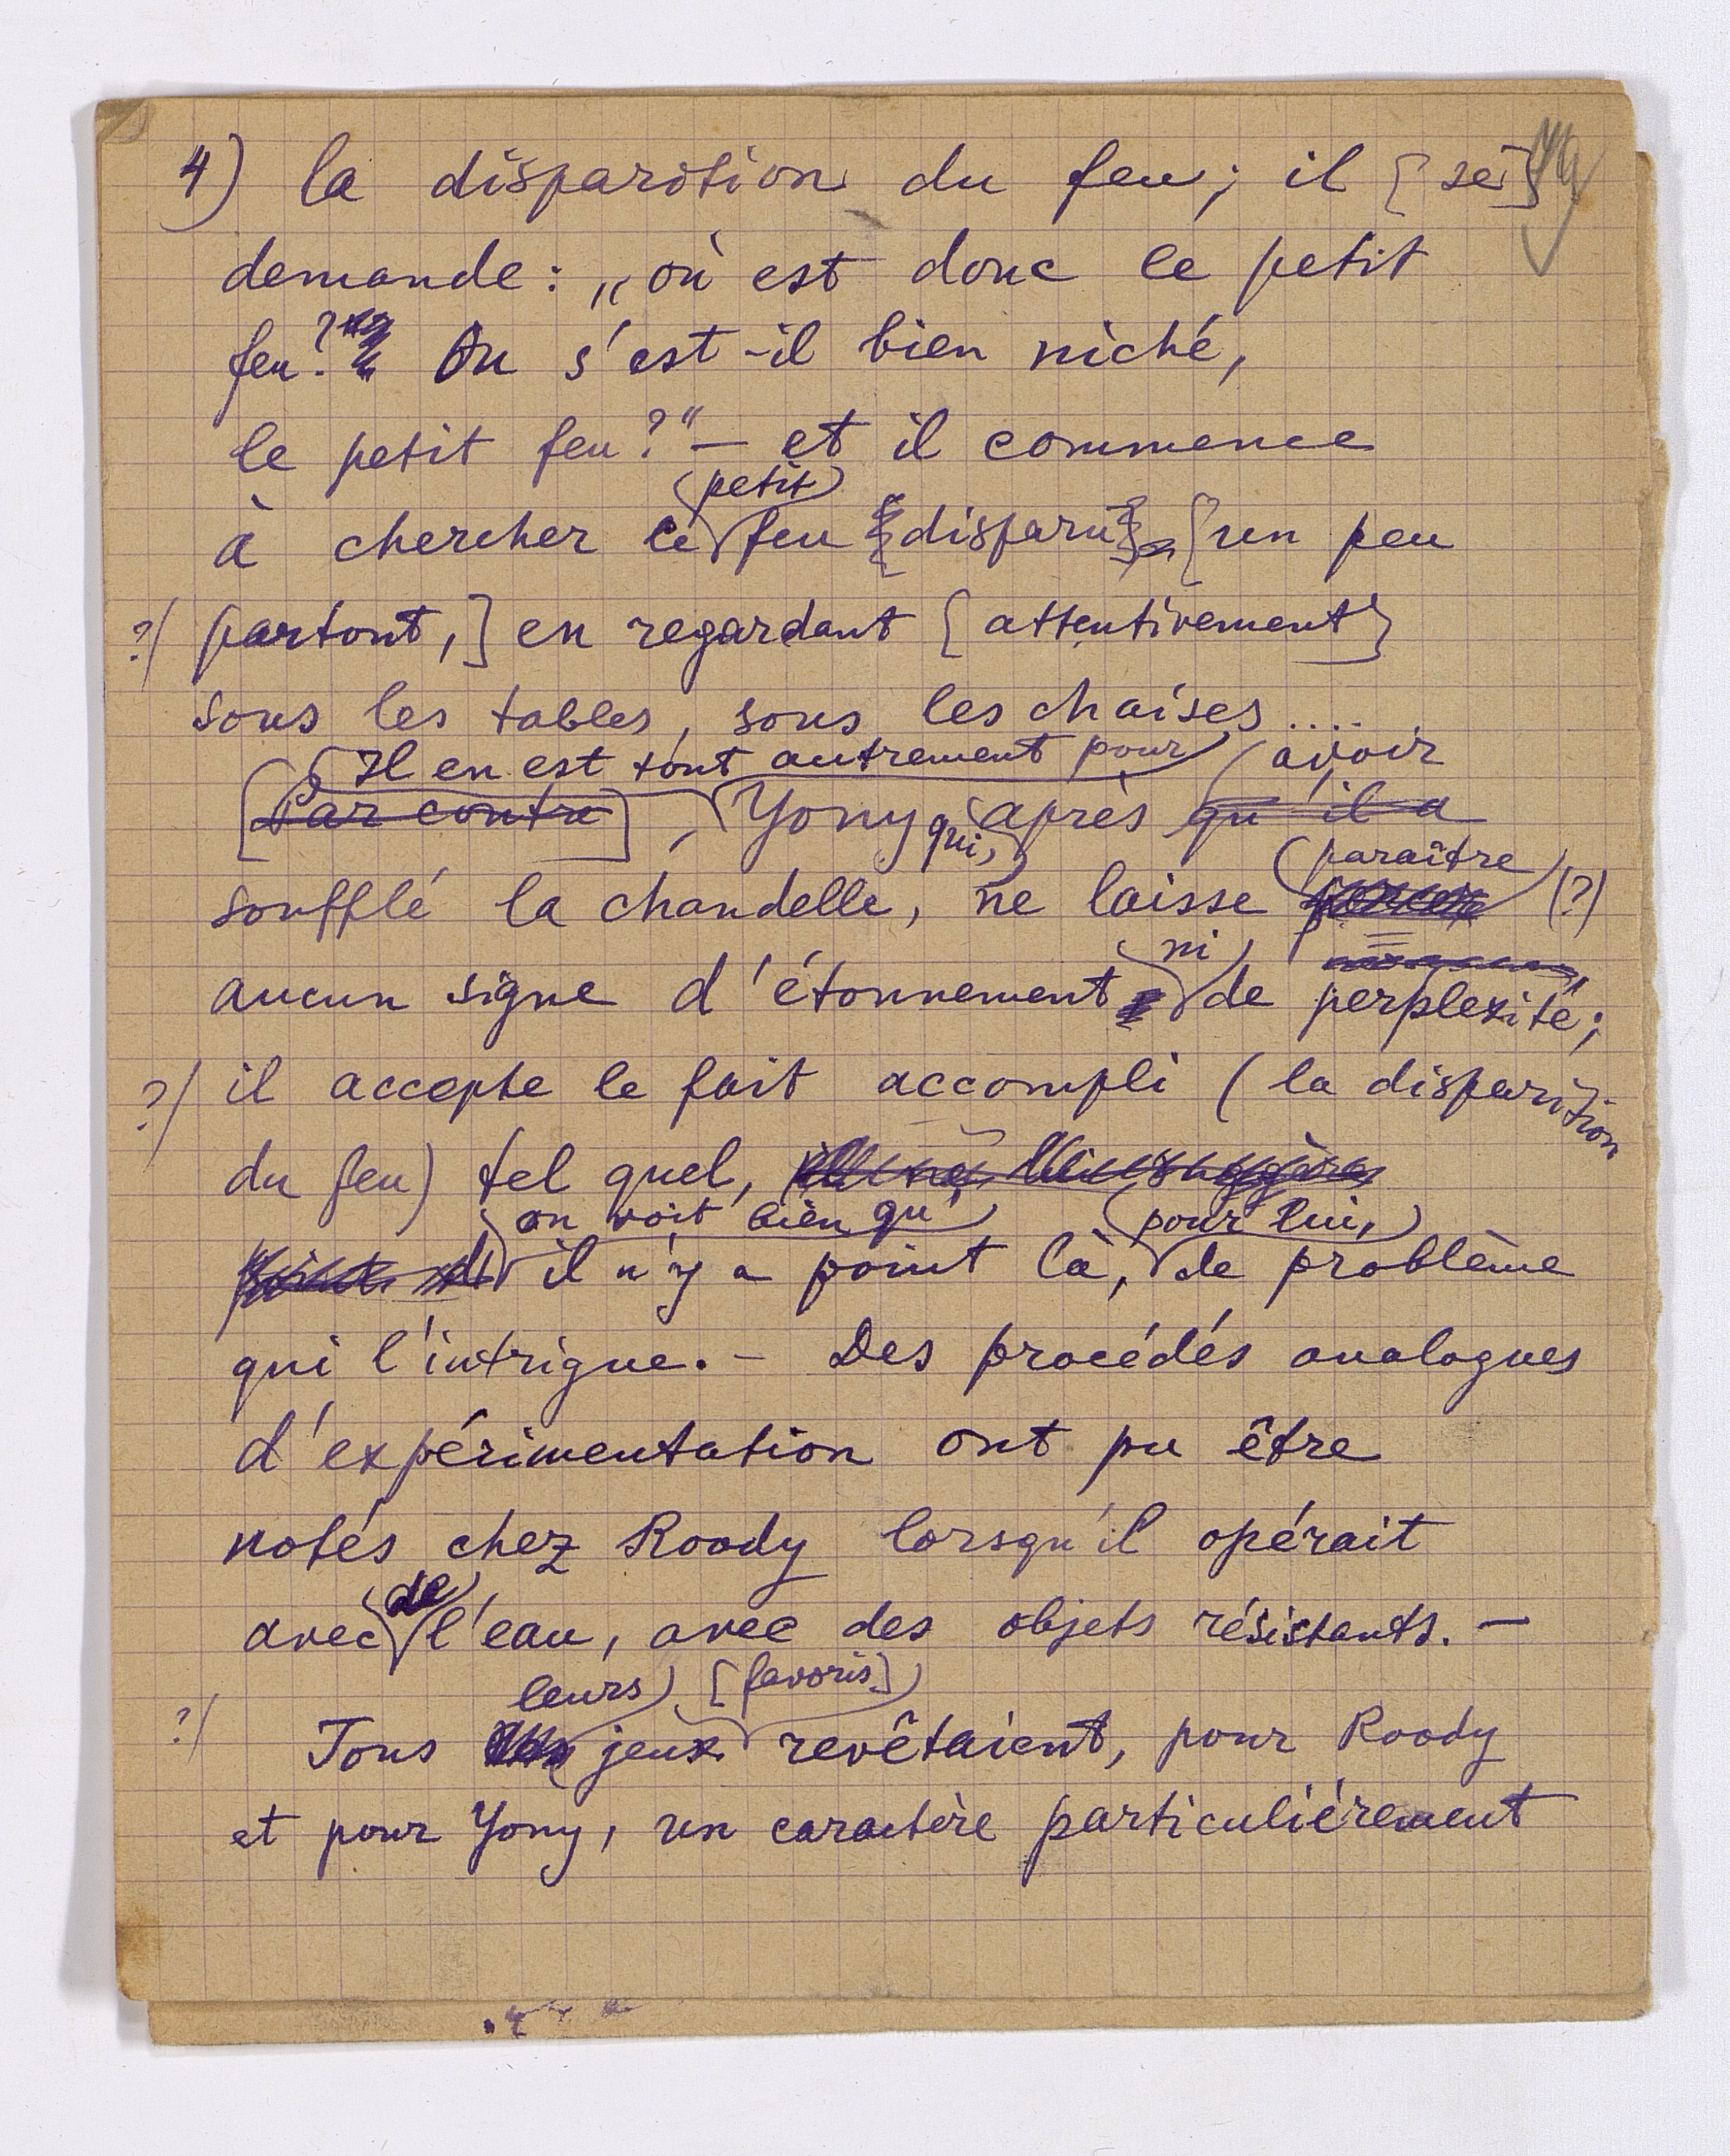 4) la disparition du feu; il [se]
demande: „où est donc le petit
feu? Ou s'est-il bien niché,
le petit feu?“ — et il commence
(petit)
à chercher le feu [disparu] [un peu
?/ partout,] en regardant [attentivement]
sous les tables, sous les chaises....
Il en est tout autrement pour avoir
[Par contre], Yony après qu'il a
qui, paraître
soufflé la chandelle, ne laisse (?)
ni
aucun signe d'étonnement de perplexité;
?/ il accepte le fait accompli (la disparition
du feu) tel quel,
on voit bien qu' pour lui,
il n'y a point là, de problème
qui l'intrigue. — Des procédés analogues
d'expérimentation ont pu être
notés chez Roody lorsqu'il opérait
de
avec l'eau, avec des objets résistants. —
leurs [favoris]
?/ Tous jeux revêtaient, pour Roody
et pour Yony, un caractère particuliérement